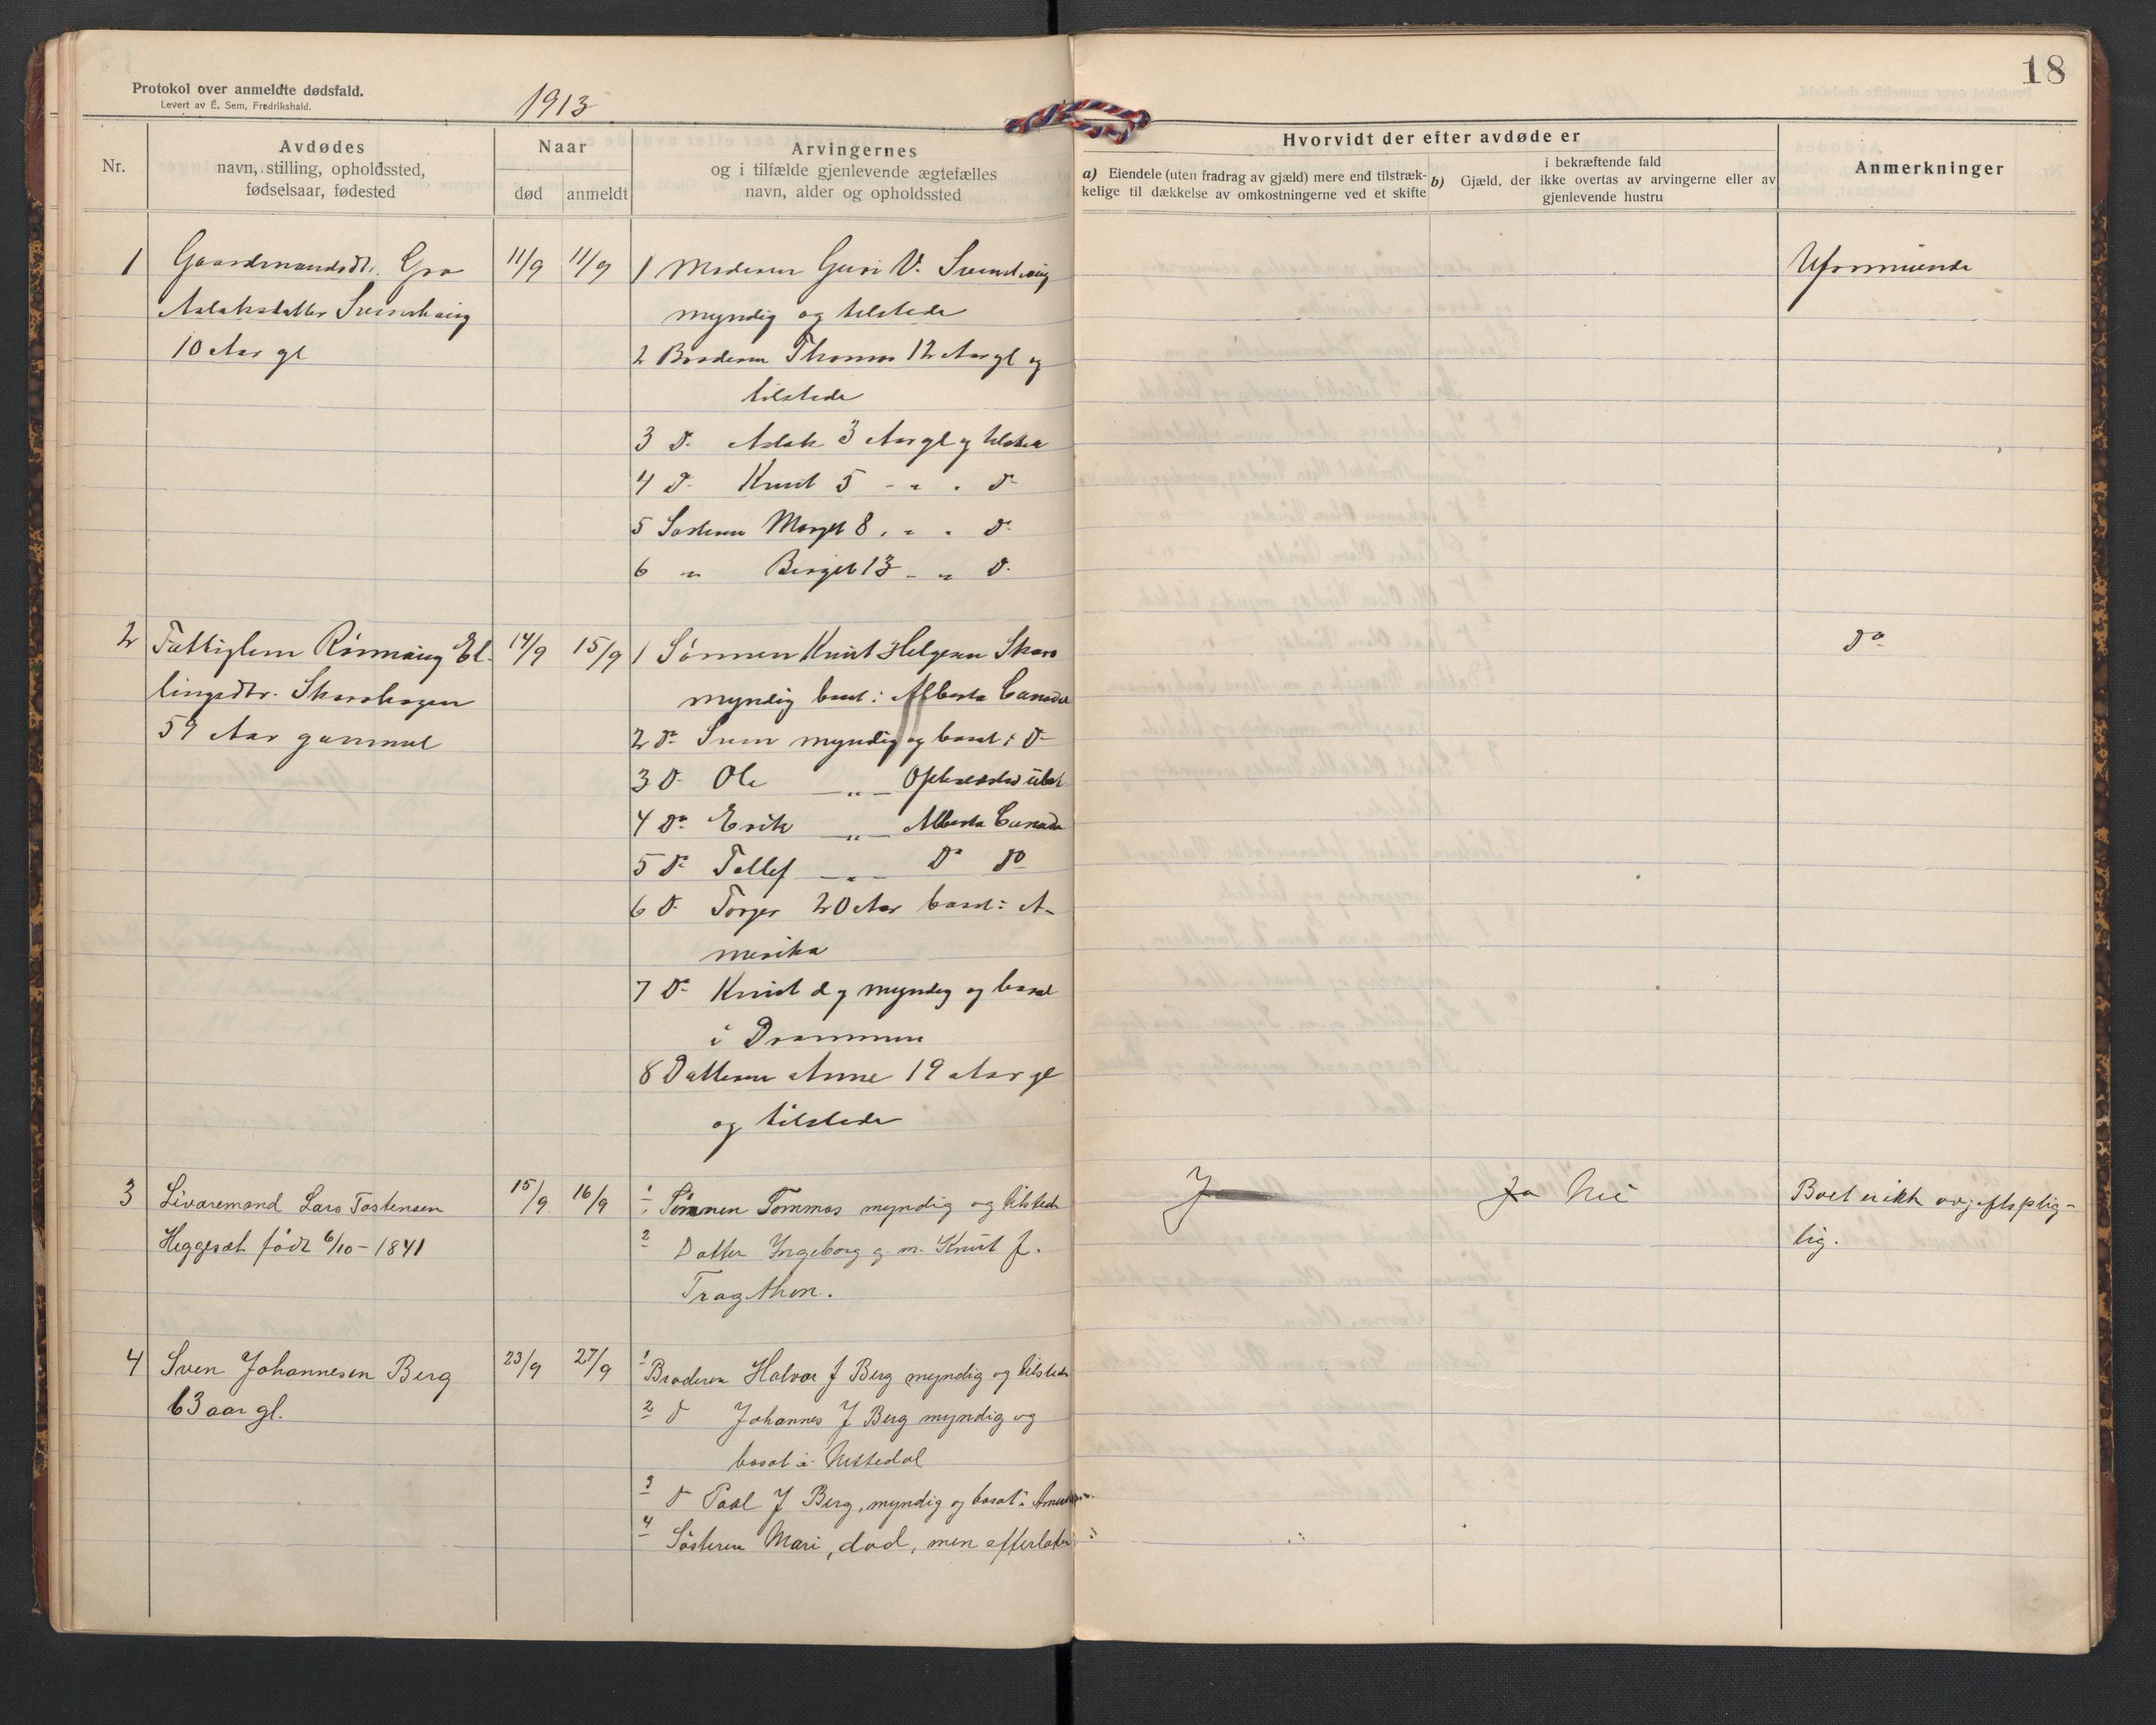 Protokol over anmeldte dødsfald.
Levert av E. Sem, Fredrikshald.
1913
18
Nr.
Avdødes
navn, stilling, opholdssted,
fødselsaar, fødested
Naar
død
anmeldt
Arvingernes
og i tilfælde gjenlevende ægtefælles
navn, alder og opholdssted
Hvorvidt der efter avdøde er
a) Eiendele (uten fradrag av gjæld) mere end tilstræk-
kelige til dækkelse av omkostningerne ved et skifte
i bekræftende fald
b) Gjæld, der ikke overtas av arvingerne eller av
gjenlevende hustru
Anmerkninger
1 Gaardmandsdtr. Gro 11/9 11/9 1 Moderen Guri V. Uformuende
Aslaksdatter myndig og tilstede
10 Aar gl 2 Broderen Thomas 12 Aar gl og
tilstede
3 Do Aslak 3 Aar gl og tilstede
4 Do Knut 5 - " - Do
5 Søsteren Margit 8 " " Do
6 " Birgit 13 - " Do
2 Fattiglem Rønnaug El- 14/9 15/9 1 Sønnen Knut Helgesen Skaro Do
lingsdtr. myndig bosat i Alberta Canada
59 Aar gammel 2 Do Sven myndig og bosat i Do
3 Do Ole - " - Opholdssted ubek
4 Do Erik - " - Alberta Canada
5 Do Tollef - " - Do Do
6 Do Torger 20 Aar bosat i A-
merika
7 Do Knut d y myndig og bosat
i Drammen
8 Datteren Anne 19 Aar gl
og tilstede
3 Livøremand Lars Tostensen 15/9 16/9 1 Sønnen Tommas myndig og tilstede Ja Ja Nei Boet er ikke avgiftsplig-
Heggesæt født 6/10-1841 2 Datter Ingeborg g. m. Knut J. tig.
Tragethon.
4 Sven Johannesen Berg 23/9 27/9 1 Broderen Halvor J Berg myndig og tilstede
63 aar gl. 2 Do Johannes J Berg myndig og
bosat i Nittedal
3 Do Paal J Berg, myndig og bosat i Amerika
4 Søsteren Mari, død, men efterlater